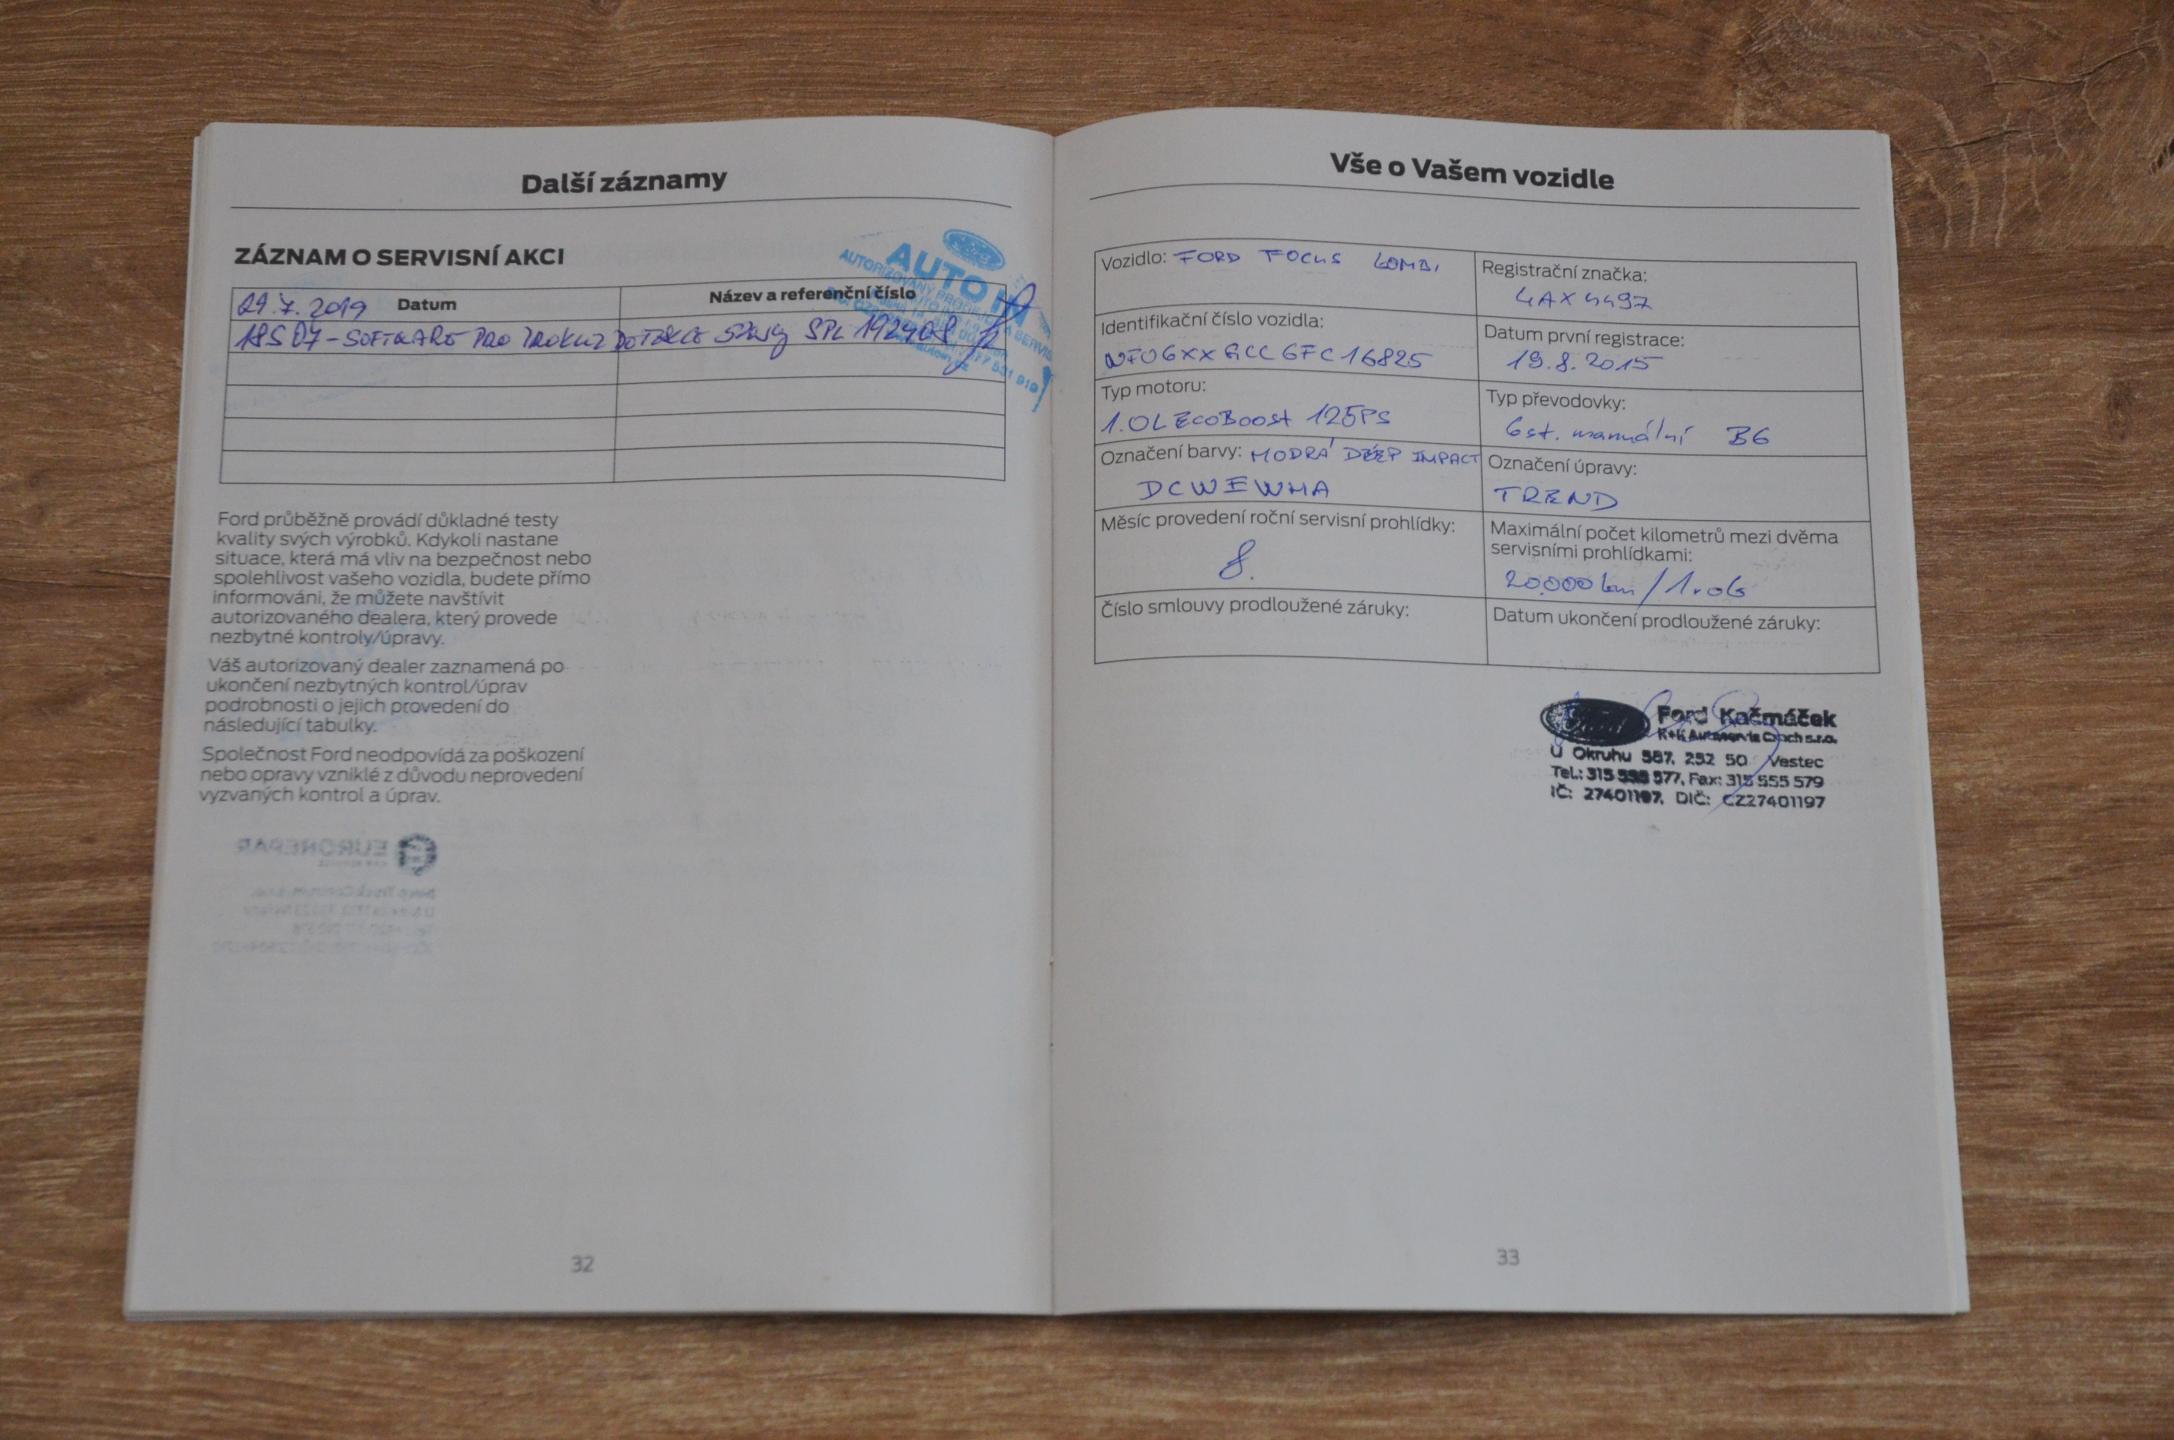 Další záznamy
ZÁZNAM O SERVISNÍ AKCI
29.7.2019 Datum
Název a referenční číslo
18S07-SOFTWARE PRO SPL 192408
AUTO IN
Ford průběžně provádí důkladné testy
kvality svých výrobků. Kdykoli nastane
situace, která má vliv na bezpečnost nebo
spolehlivost vašeho vozidla, budete přímo
informováni, že můžete navštívit
autorizovaného dealera, který provede
nezbytné kontroly/úpravy.
Váš autorizovaný dealer zaznamená po
ukončení nezbytných kontrol/úprav
podrobnosti o jejich provedení do
následující tabulky.
Společnost Ford neodpovídá za poškození
nebo opravy vzniklé z důvodu neprovedení
vyzvaných kontrol a úprav.
EUROREPAR
32
Vše o Vašem vozidle
Vozidlo: FORD FOCUS KOMBI
Registrační značka:
4AX4497
Identifikační číslo vozidla:
WF06XXGCC6FC16825
Datum první registrace:
19.8.2015
Typ motoru:
1.0L EcoBoost 125PS
Typ převodovky:
6st. manuální B6
Označení barvy: MODRÁ DEEP IMPACT
DCWEWHA
Označení úpravy:
TREND
Měsíc provedení roční servisní prohlídky:
8.
Maximální počet kilometrů mezi dvěma
servisními prohlídkami:
20.000 km/1 rok
Číslo smlouvy prodloužené záruky:
Datum ukončení prodloužené záruky:
Ford
Ford Kačmáček
K+K Autoservis Czech s.r.o.
U Okruhu 587, 252 50 Vestec
Tel.: 315 555 577, Fax: 315 555 579
IČ: 27401197, DIČ: CZ27401197
33